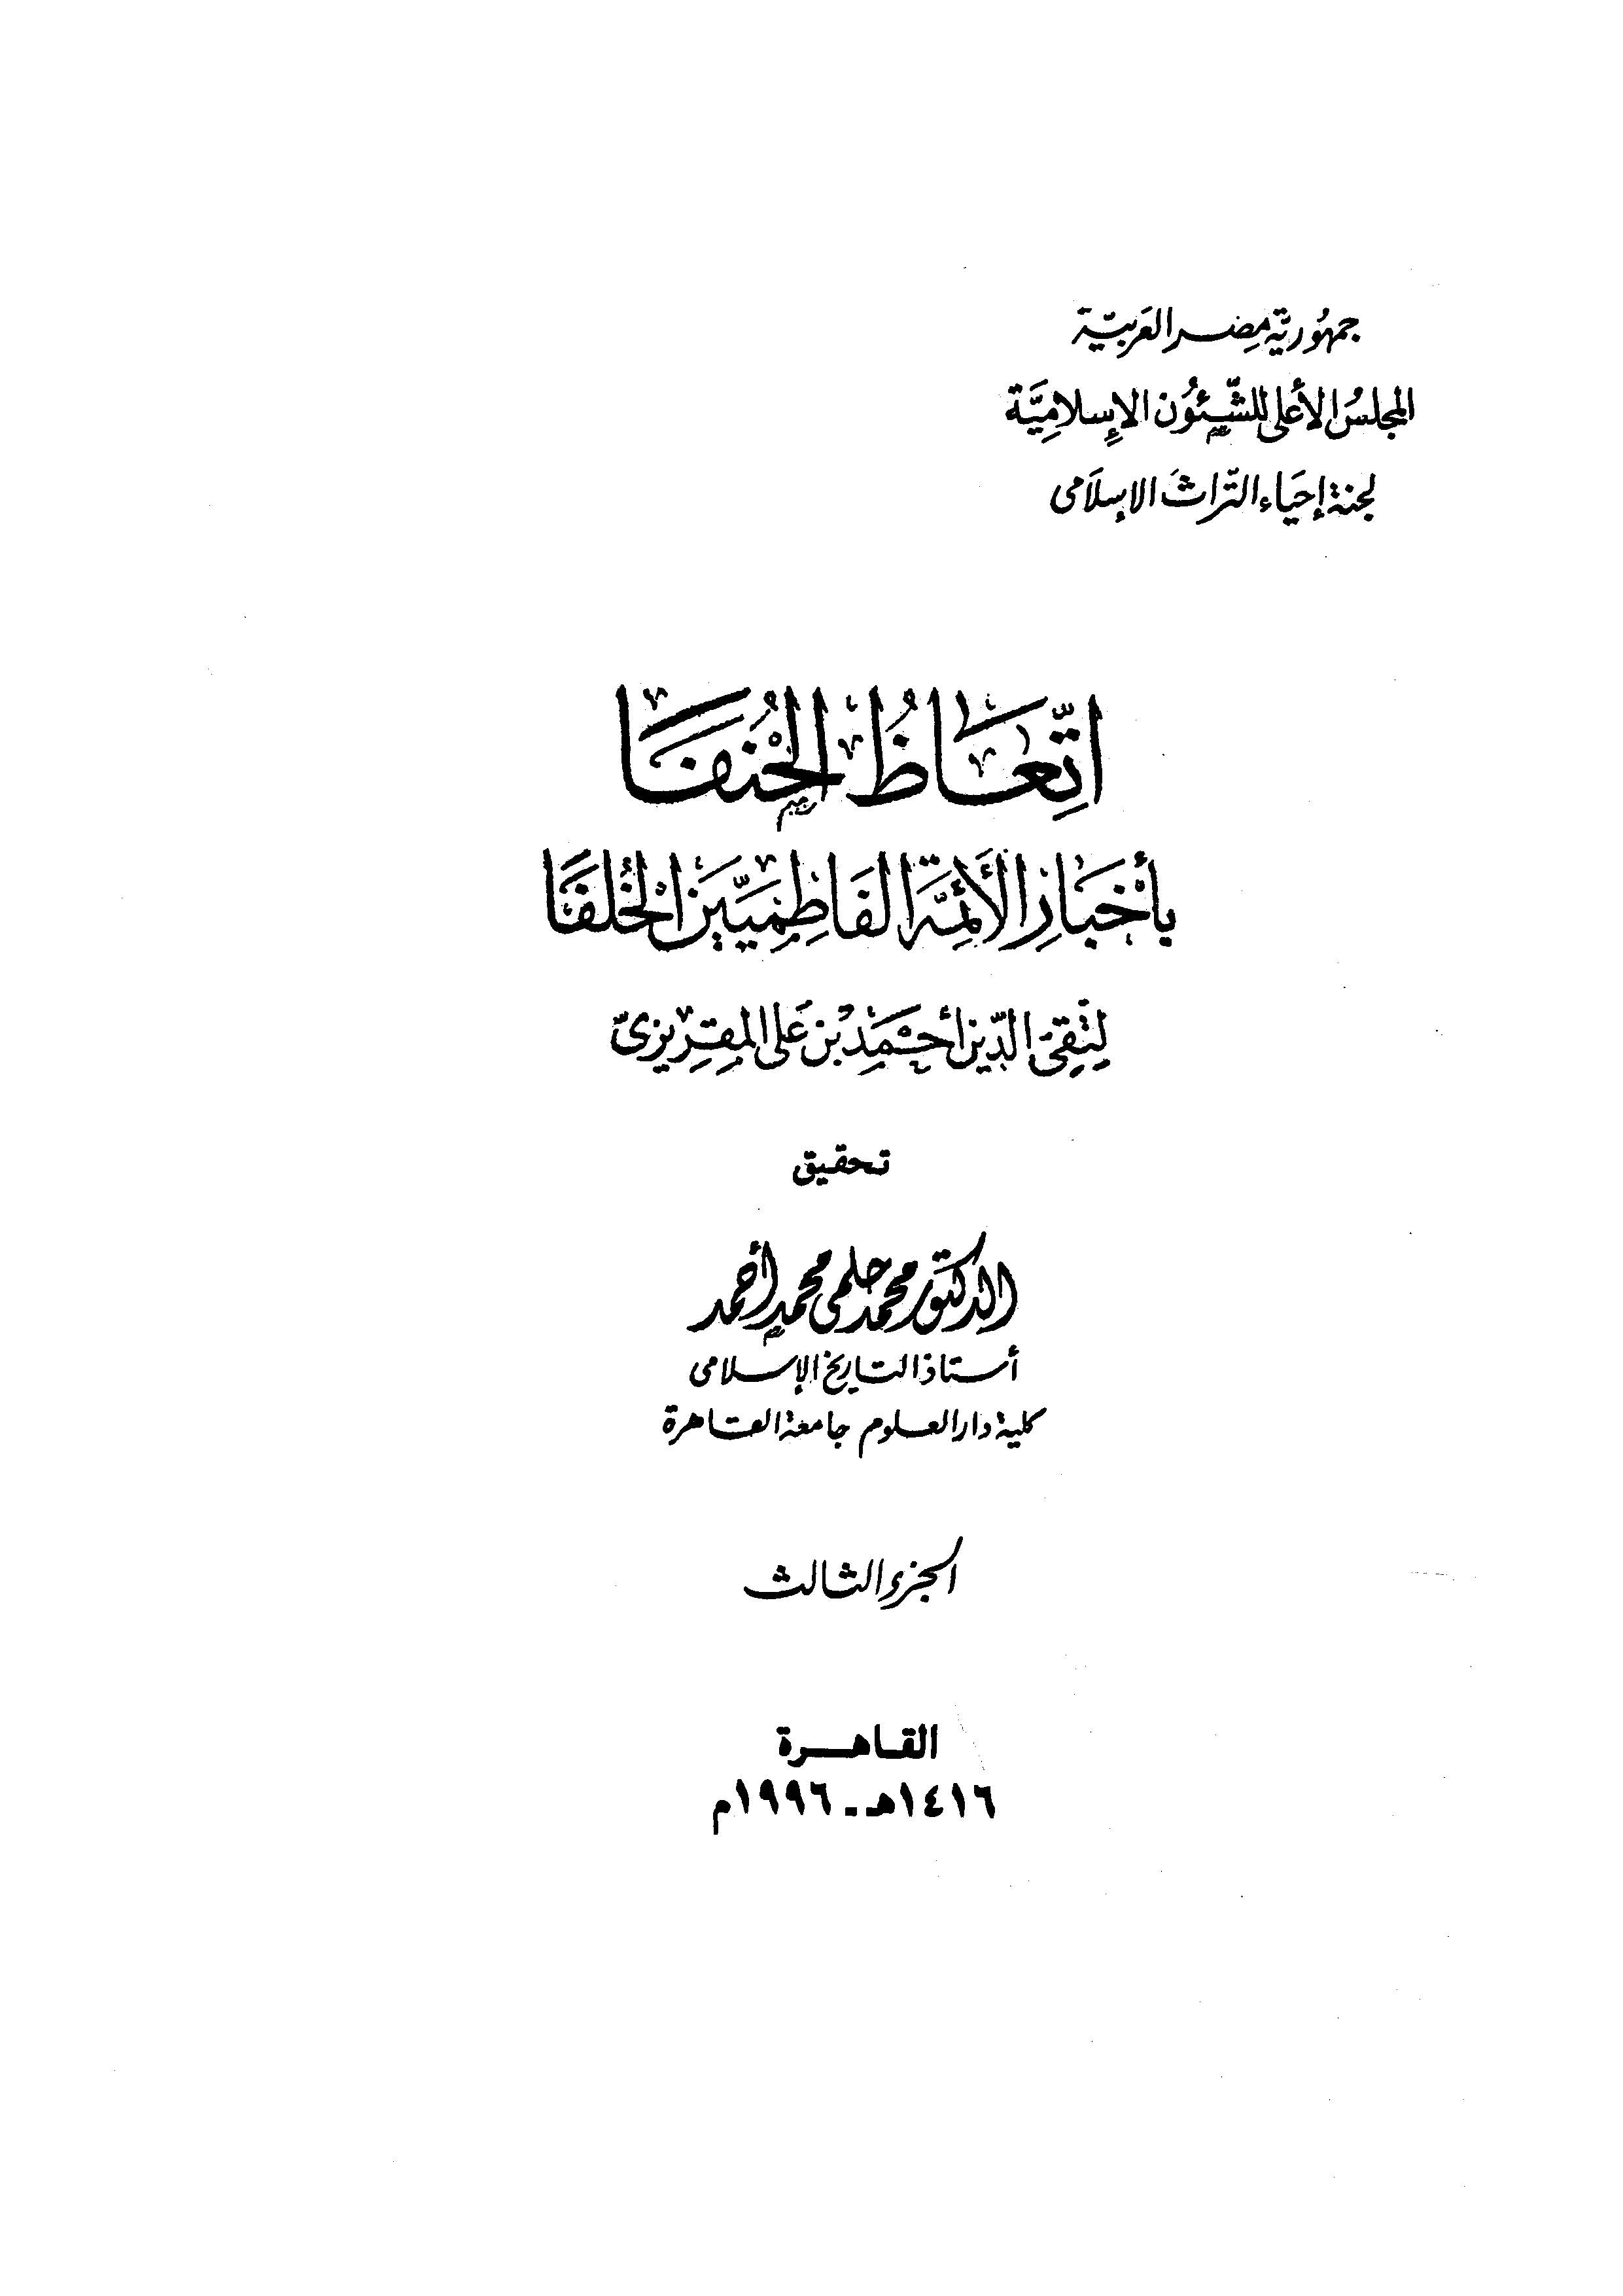 جمهُوريّة مِصر العَربيّة
المجلسُ الأعلى للشّئوُن الإسلاميَّة
لجنة إحيَاء التّراث الإسلَامى
اتّعَاظُ الحُنفَا
بأخبَارِ الأئمَّة الفَاطِميّين الخُلفَا
لتَقِىّ الدّين أحْمَد بْن عَلى المقريزىّ
تحقيق
الدكتور محمد حلمى محمد أحمد
أستاذ التاريخ الإسلامى
كلية دار العلوم جامعة القاهرة
الجزء الثالث
القاهرة
١٤١٦هـ - ١٩٩٦م